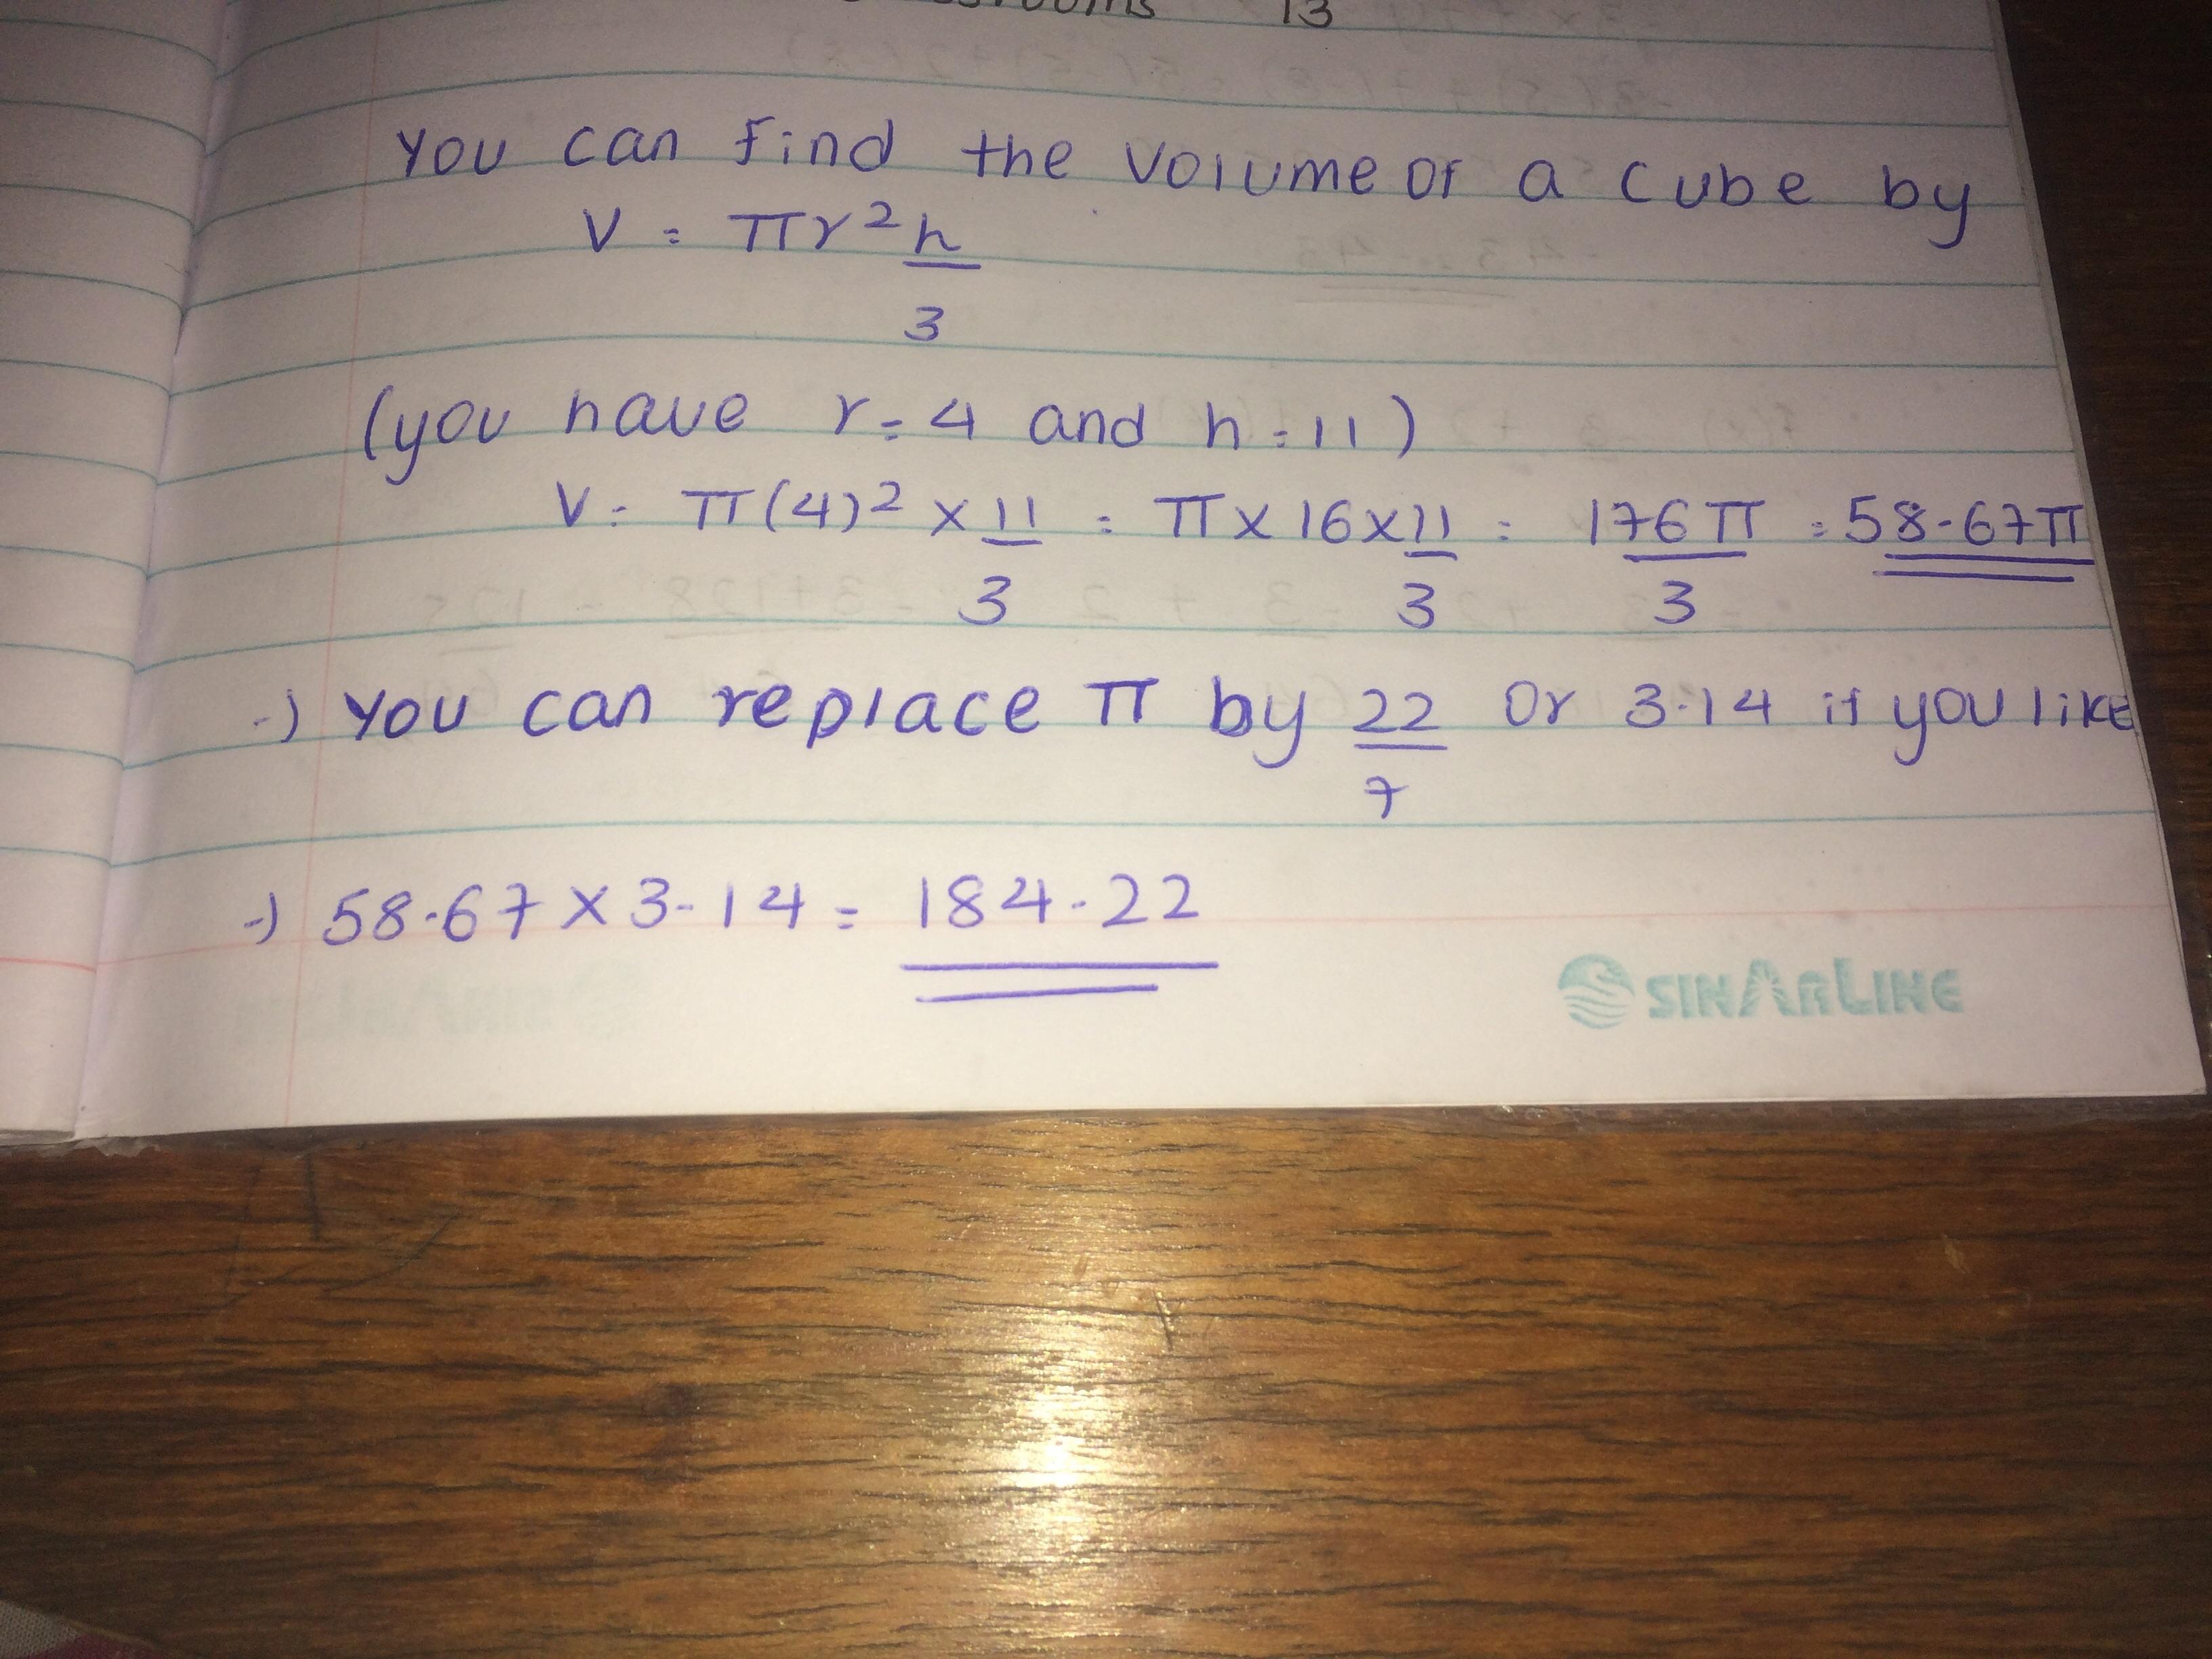 13
You can find the volume of a cube by
V = πr² h/3
(you have r = 4 and h = 11)
V = π(4)² × 11/3 = π × 16 × 11/3 = 176π/3 = 58.67π
·) You can replace π by 22/7 or 3.14 if you like
·) 58.67 × 3.14 = 184.22
SINARLINE